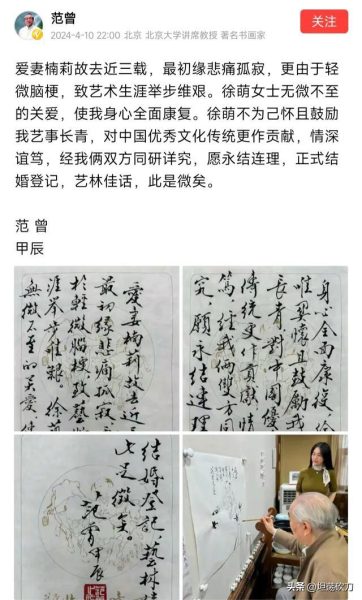 范曾
2024-4-10 22:00 北京 北京大学讲席教授 著名书画家
关注
爱妻楠莉故去近三载，最初缘悲痛孤寂，更由于轻
微脑梗，致艺术生涯举步维艰。徐萌女士无微不至
的关爱，使我身心全面康复。徐萌不为己怀且鼓励
我艺事长青，对中国优秀文化传统更作贡献，情深
谊笃，经我俩双方同研详究，愿永结连理，正式结
婚登记，艺林佳话，此是微矣。
范 曾
甲辰
愛妻楠莉故去近三
最初缘悲痛孤寂
於輕微腦梗致藝
涯舉步維艱 徐萌
無微不至的关爱使
身心全面康復徐
唯畏懷且鼓勵我
長青對中國優
傳統更作貢獻情
篤經我倆雙方同
究 願永结連理
结婚登記藝林
七是微矣
范曾甲辰
头条 @坦荡砍刀